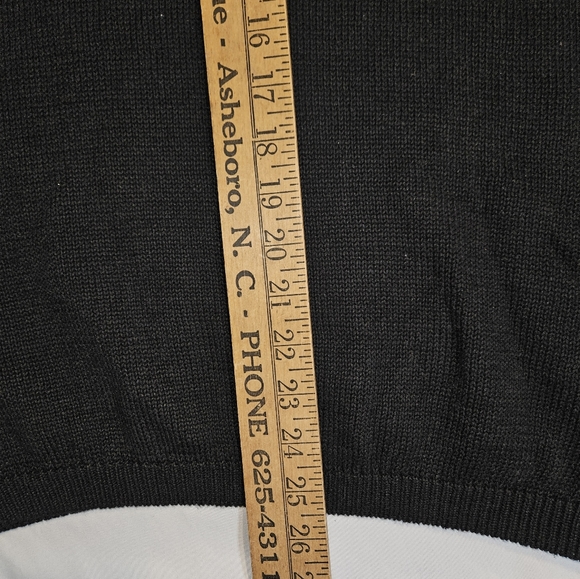 ue - Asheboro, N. C. - PHONE 625-431
16 17 18 19 20 21 22 23 24 25 26